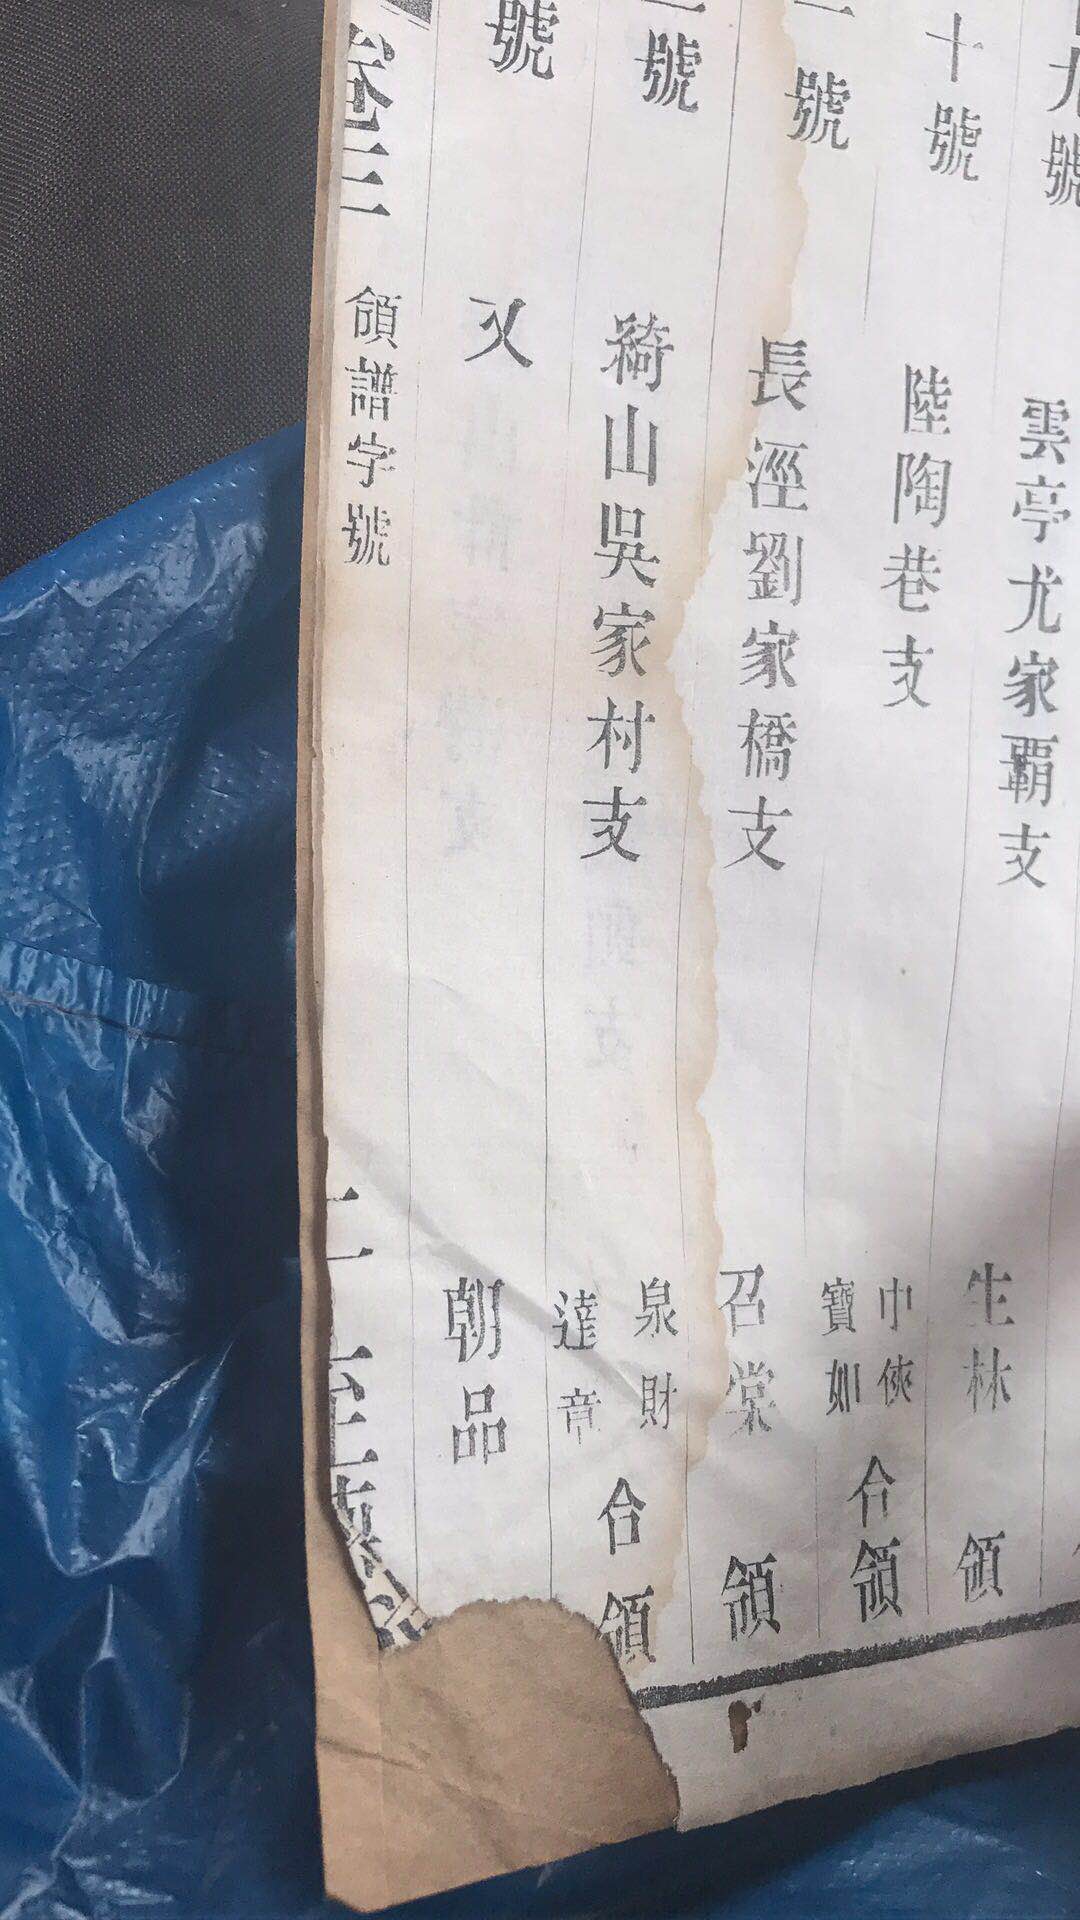 九號 雲亭尤家覇支
十號 陸陶巷支 生林 領
一號 長涇劉家橋支 巾俠 寶如 合領
號 綺山吳家村支 召棠 領
號 又 泉財 達章 合領
朝品
卷三 領譜字號 二